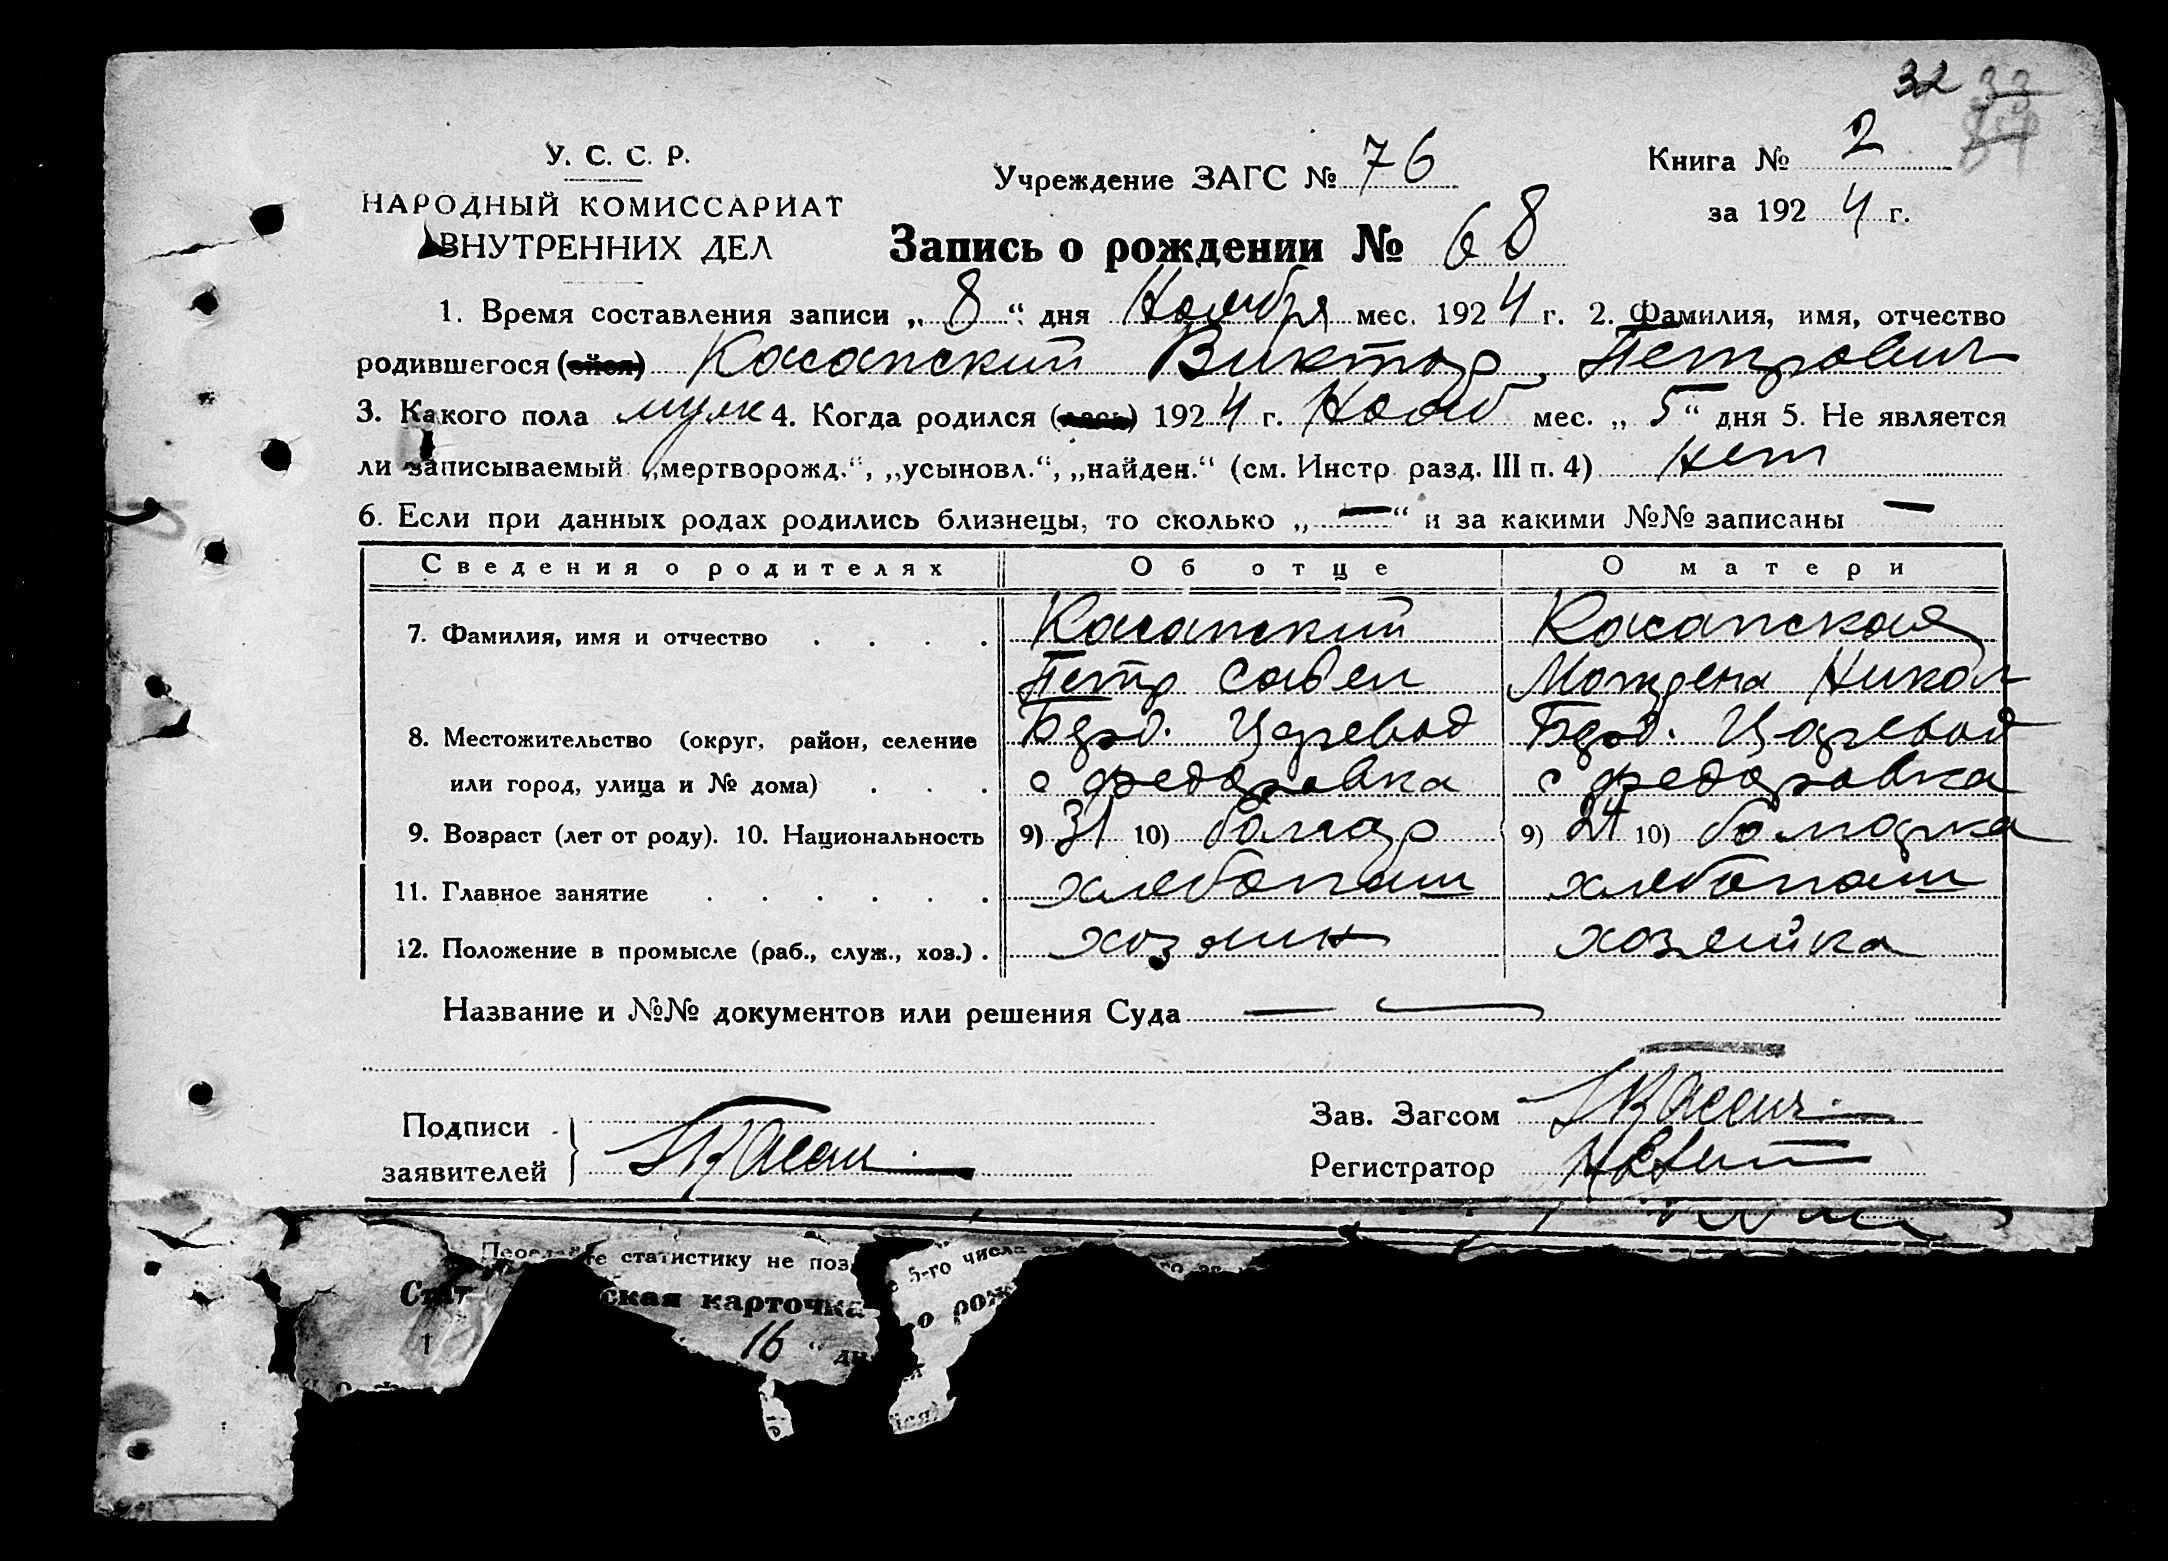 32 33
У. С. С. Р.
НАРОДНЫЙ КОМИССАРИАТ
ВНУТРЕННИХ ДЕЛ
Учреждение ЗАГС № 76
Книга № 2
за 192 4 г.
Запись о рождении № 68
1. Время составления записи „ 8 “ дня Ноября мес. 192 4 г. 2. Фамилия, имя, отчество
родившегося Касапский Виктор Петрович
3. Какого пола муж 4. Когда родился 192 4 г. Нояб мес. „ 5 “ дня 5. Не является
ли записываемый „мертворожд.“, „усыновл.“, „найден.“ (см. Инстр. разд. III п. 4) нет
6. Если при данных родах родились близнецы, то сколько „ — “ и за какими №№ записаны —
Сведения о родителях Об отце О матери
7. Фамилия, имя и отчество . . . . Касапский Касапская
Петр Савел Никол
8. Местожительство (округ, район, селение Бердь. Царевод Бердь. Царевод
или город, улица и № дома) . . . с федоровка с федоровка
9. Возраст (лет от роду). 10. Национальность 9) 31 10) болгар 9) 24 10) болгарка
11. Главное занятие . . . . . . хлебопаш хлебопаш
12. Положение в промысле (раб., служ., хоз.) . хозяин хозяйка
Название и №№ документов или решения Суда —
Подписи
заявителей
Зав. Загсом
Регистратор
статистику не поз 5-го числа
Стат ская карточка о рож
1 16 “ дн